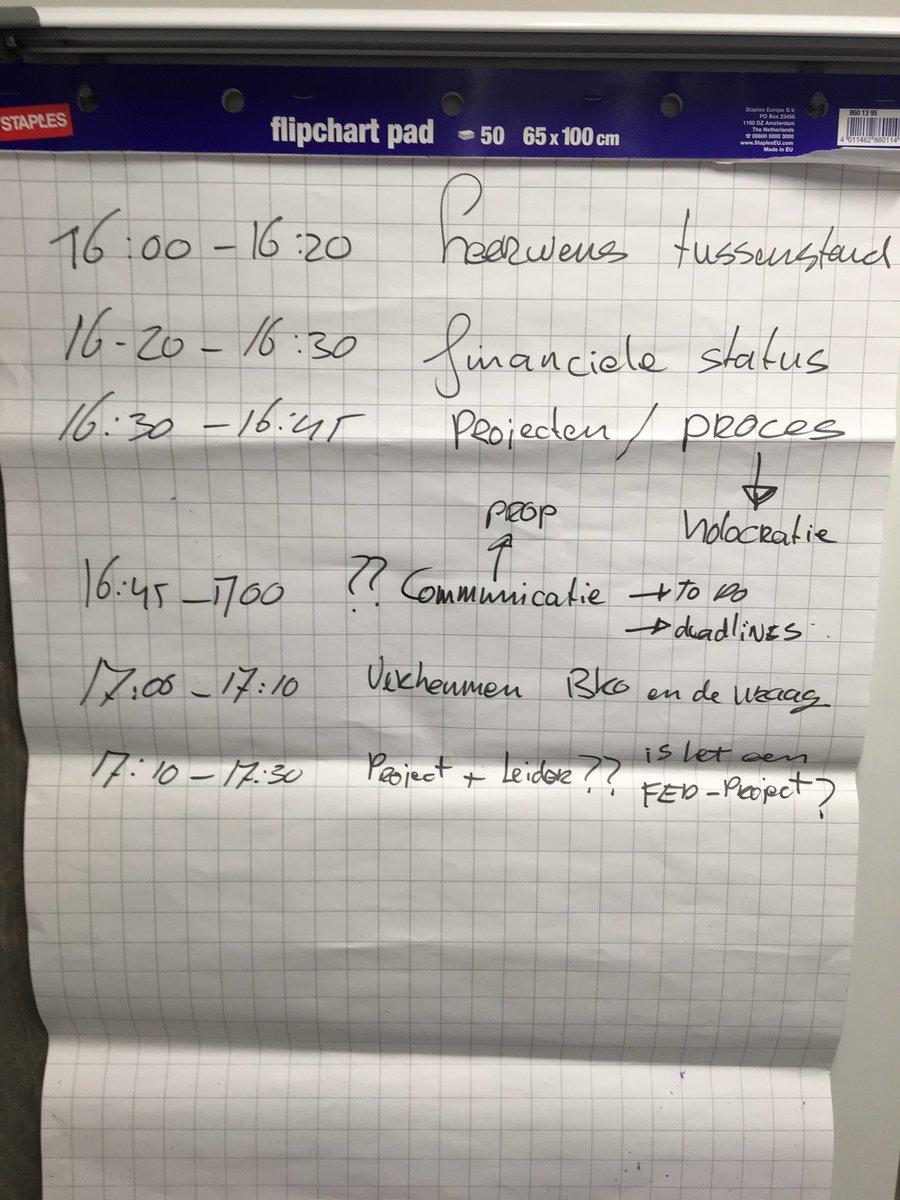 STAPLES
flipchart pad 50 65 x 100 cm
Staples Europe B.V.
PO Box 23456
1100 DZ Amsterdam
The Netherlands
☎ 00800 5000 3000
www.StaplesEU.com
Made in EU
860 13 95
4 011462 860114
16:00 - 16:20 heerwens tussenstand
16-20 - 16:30 financiele status
16:30 - 16:45 Projecten / proces
PROP
holocratie
16:45 - 1700 ?? Communicatie → To Do
→ deadlines
17:00 - 17:10 BKO en de Waag
17:10 - 17:30 Project + Leider??
is het een
FED-Project?